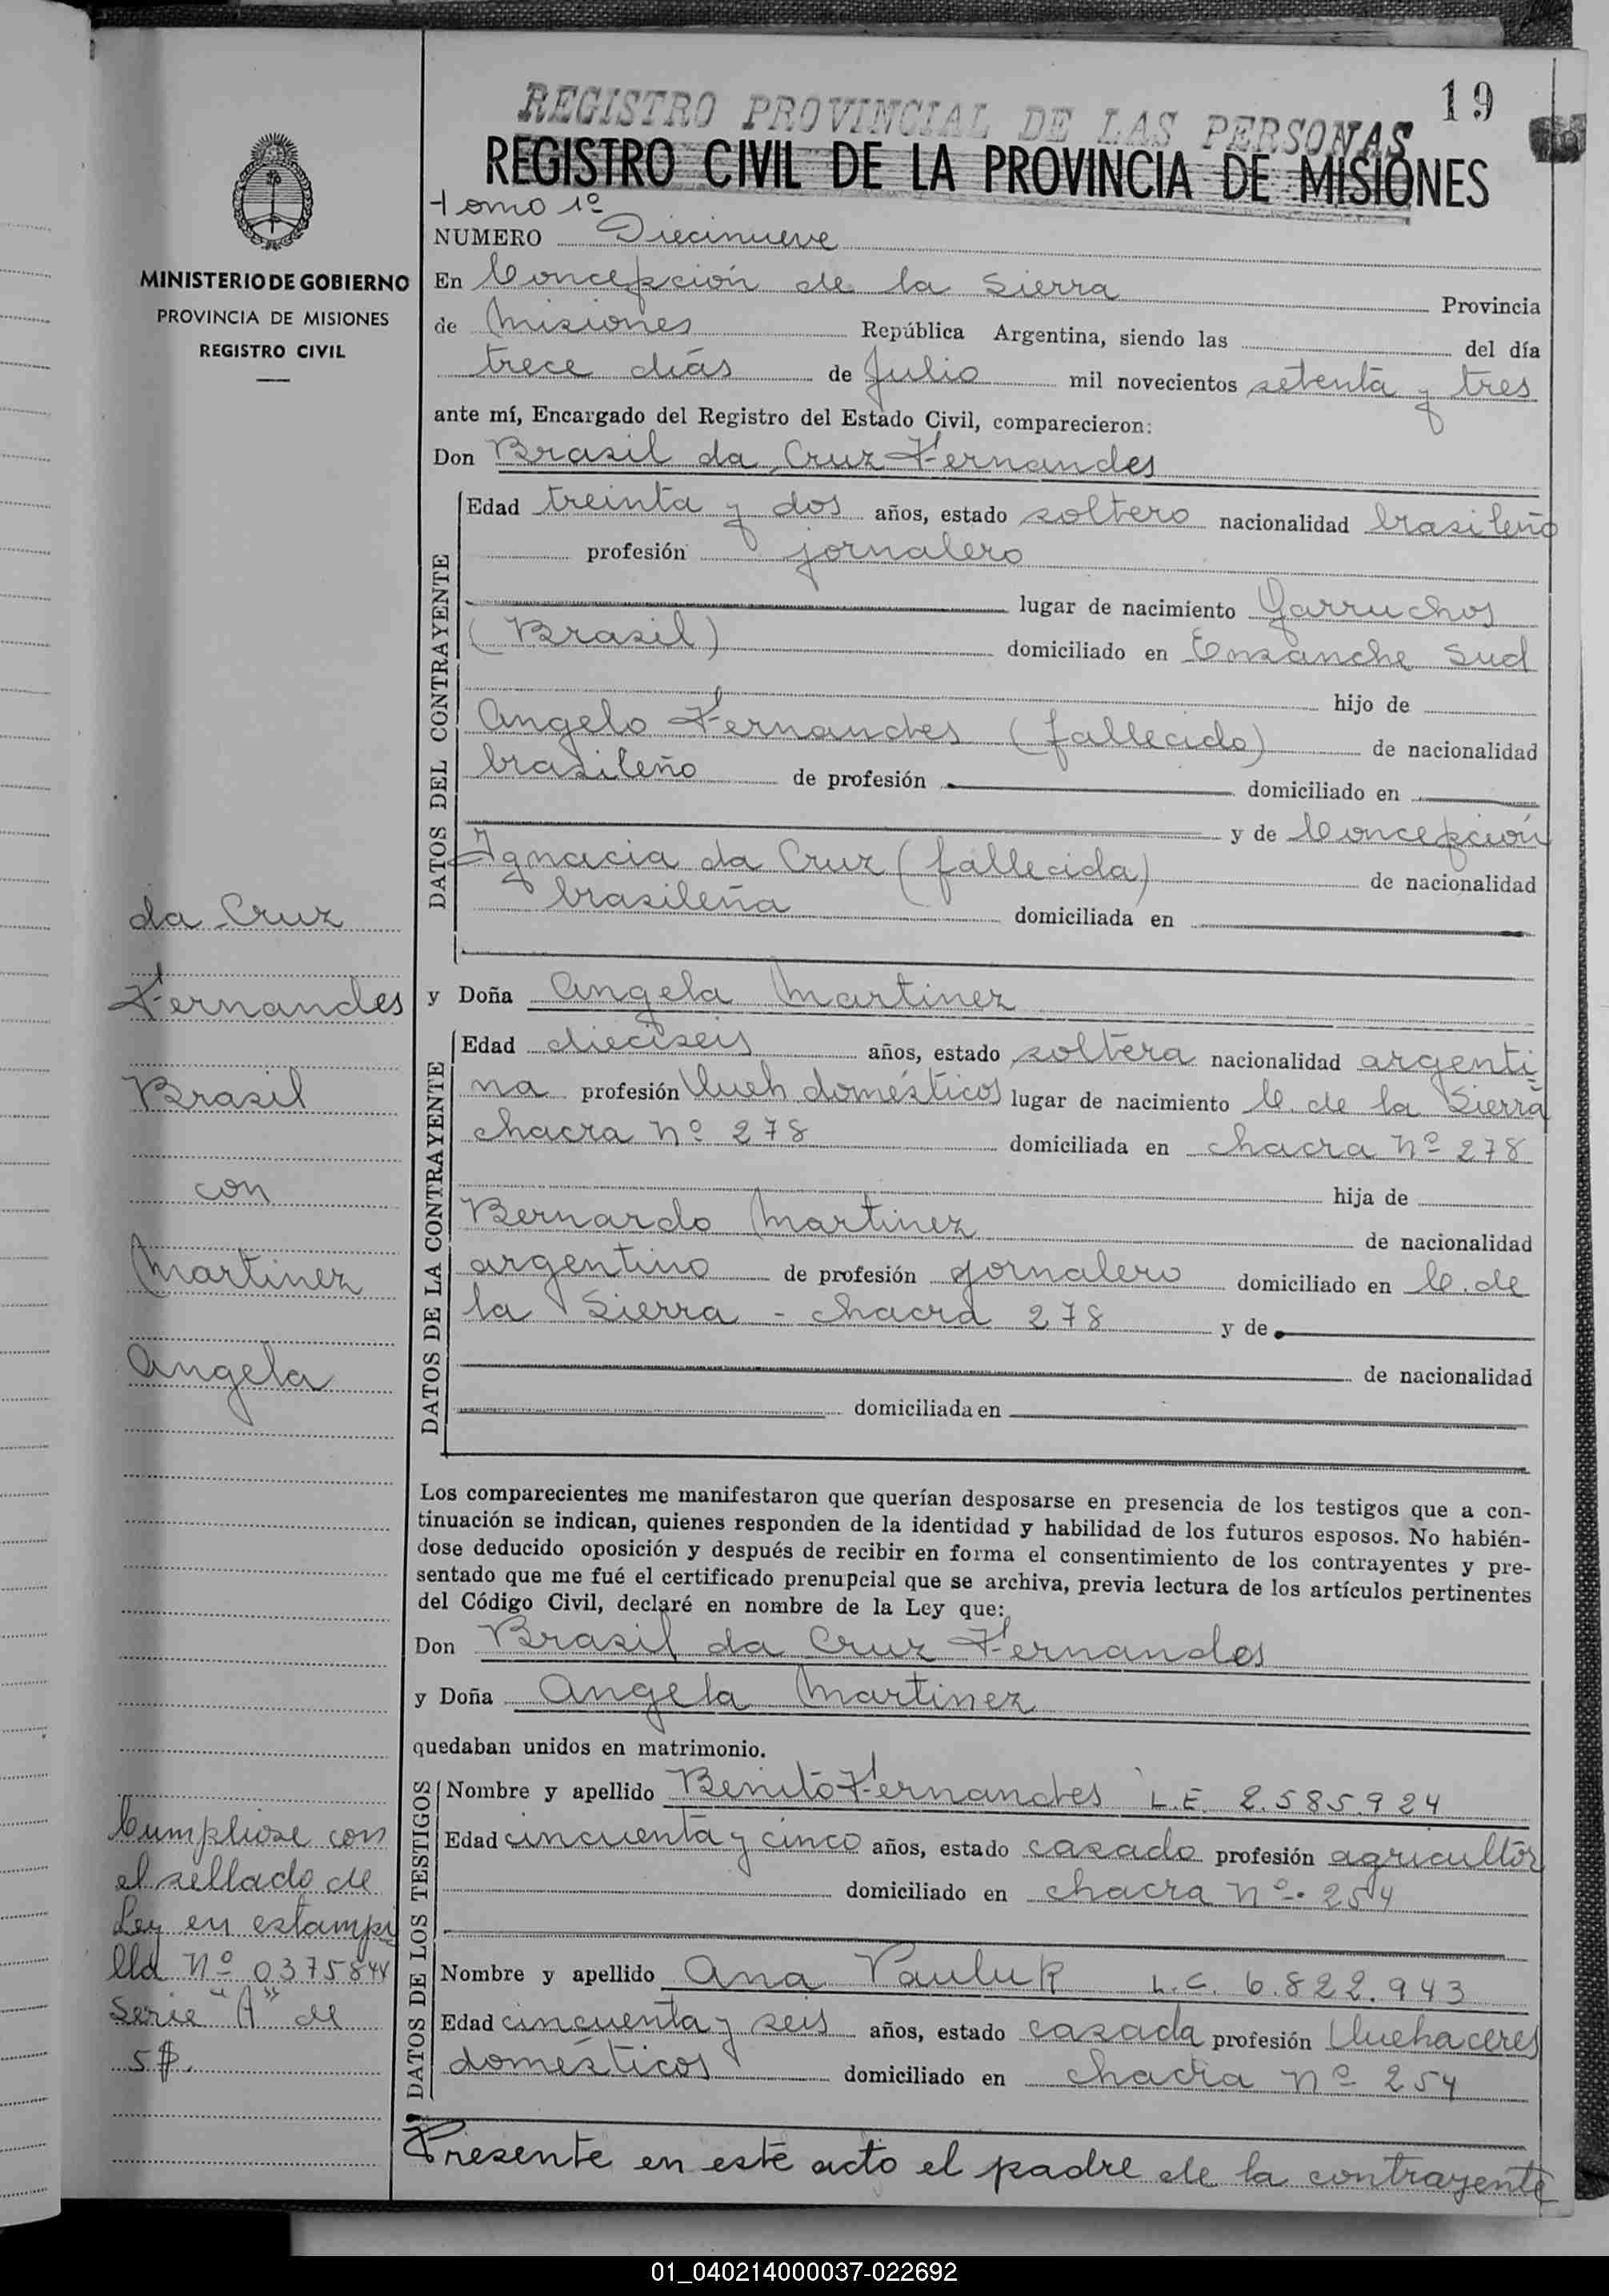 19
REGISTRO PROVINCIAL DE LAS PERSONAS
REGISTRO CIVIL DE LA PROVINCIA DE MISIONES
MINISTERIO DE GOBIERNO
PROVINCIA DE MISIONES
REGISTRO CIVIL
Tomo 1º
NUMERO Diecinueve
En Concepción de la Sierra Provincia
de Misiones República Argentina, siendo las del día
trece días de Julio mil novecientos setenta y tres
ante mí, Encargado del Registro del Estado Civil, comparecieron:
Don Brasil da Cruz Fernandes
DATOS DEL CONTRAYENTE
Edad treinta y dos años, estado soltero nacionalidad brasileño
profesión jornalero
lugar de nacimiento Garruchos
(Brasil) domiciliado en Ensanche Sud
hijo de
Angelo Fernandes (fallecido) de nacionalidad
brasileño de profesión domiciliado en
y de Concepción
Ignacia da Cruz (fallecida) de nacionalidad
brasileña domiciliada en
y Doña Angela Martinez
DATOS DE LA CONTRAYENTE
Edad dieciseis años, estado soltera nacionalidad argenti
na profesión domésticos lugar de nacimiento C. de la Sierra
chacra Nº 278 domiciliada en chacra Nº 278
hija de
Bernardo Martinez de nacionalidad
argentino de profesión jornalero domiciliado en C. de
la Sierra - chacra 278 y de
de nacionalidad
domiciliada en
Los comparecientes me manifestaron que querían desposarse en presencia de los testigos que a con-
tinuación se indican, quienes responden de la identidad y habilidad de los futuros esposos. No habién-
dose deducido oposición y después de recibir en forma el consentimiento de los contrayentes y pre-
sentado que me fué el certificado prenupcial que se archiva, previa lectura de los artículos pertinentes
del Código Civil, declaré en nombre de la Ley que:
Don Brasil da Cruz Fernandes
y Doña Angela Martinez
quedaban unidos en matrimonio.
DATOS DE LOS TESTIGOS
Nombre y apellido Benito Fernandes L.E. 2.585.924
Edad cincuenta y cinco años, estado casado profesión agricultor
domiciliado en chacra Nº 254
Nombre y apellido Ana Pauluk L.C. 6.822.943
Edad cincuenta y seis años, estado casada profesión Quehaceres
domésticos domiciliado en chacra Nº 254
Presente en este acto el padre de la contrayente
da Cruz
Fernandes
Brasil
con
Martinez
Angela
Cumpliose con
el sellado de
Ley en estampi
lla Nº 0375844
Serie "A" de
5 $.
01_040214000037-022692